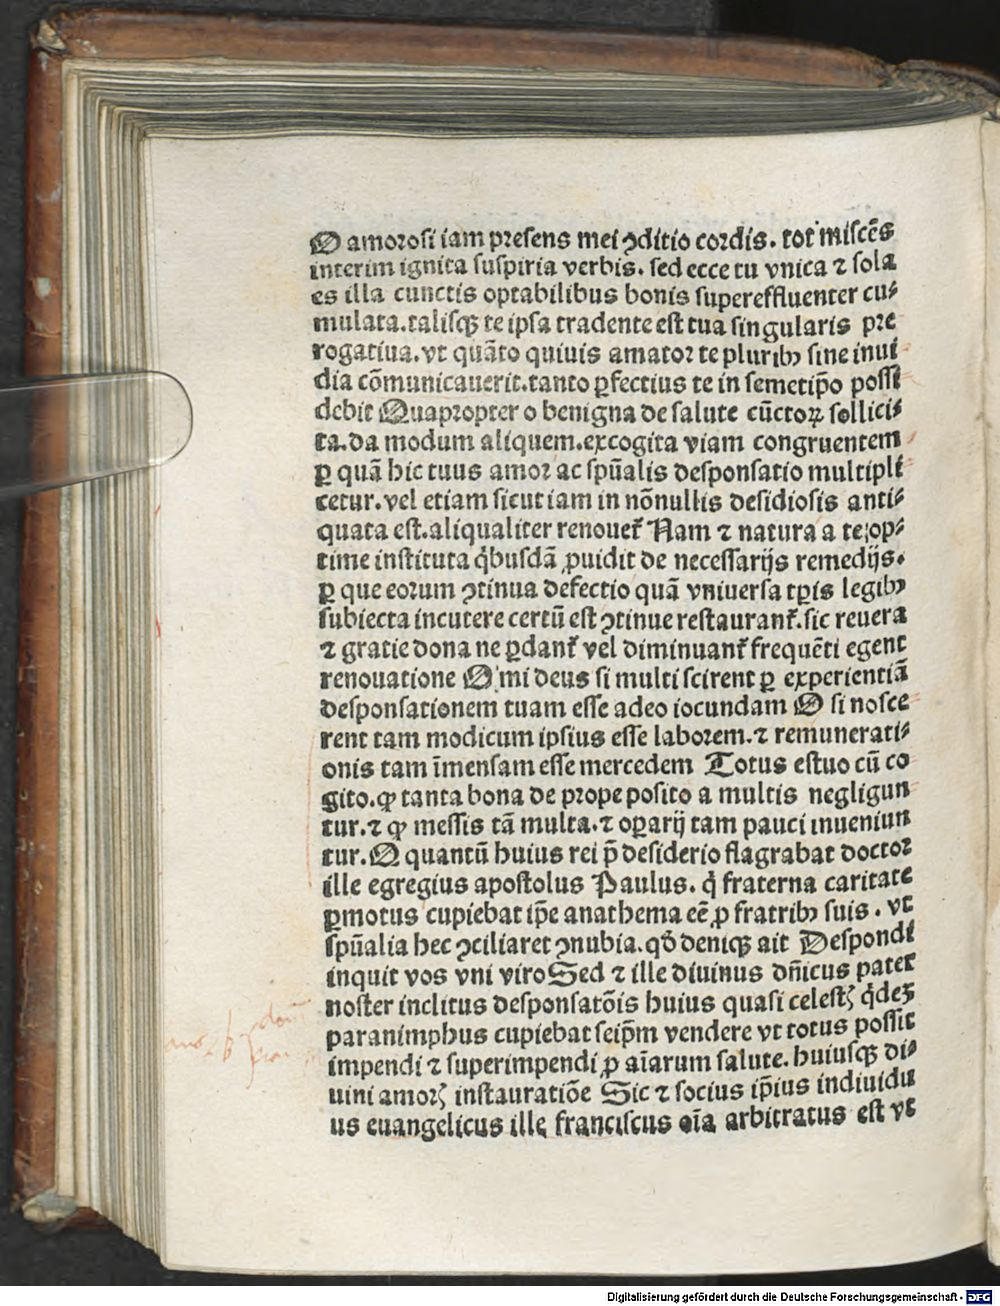 O amorosi iam presens mei ↄditio cordis. tot miscēs
interim ignita suspiria verbis. sed ecce tu vnica ⁊ sola
es illa cunctis optabilibus bonis supereffluenter cu⸗
mulata. talisqꝫ te ipsa tradente est tua singularis pre
rogatiua. vt quāto quiuis amator te pluribꝰ sine inui
dia cōmunicauerit. tanto ꝑfectius te in semetip̄o possi
debit Quapropter o benigna de salute cūctoꝝ sollici⸗
ta. da modum aliquem. excogita viam congruentem
ꝑ quā hic tuus amor ac sp̄ualis desponsatio multipli
cetur. vel etiam sicut iam in nōnullis desidiosis anti⸗
quata est. aliqualiter renouet᷑ Nam ⁊ natura a te op⸗
time instituta q̇busdā ꝓuidit de necessarijs remedijs.
ꝑ que eorum ↄtinua defectio quā vniuersa tꝑis legibꝰ
subiecta incutere certū est ↄtinue restaurant᷑. sic reuera
⁊ gratie dona ne ꝑdant᷑ vel diminuant᷑ frequēti egent
renouatione O mi deus si multi scirent ꝑ experientiā
desponsationem tuam esse adeo iocundam O si nosce
rent tam modicum ipsius esse laborem. ⁊ remunerati⸗
onis tam īmensam esse mercedem Totus estuo cū co
gito. ꝙ tanta bona de prope posito a multis negligun
tur. ⁊ ꝙ messis tā multa. ⁊ oꝑarij tam pauci inueniun
tur. O quantū huius rei p̄ desiderio flagrabat doctor
ille egregius apostolus Paulus. q̇ fraterna caritate
ꝑmotus cupiebat ip̄e anathema eē ꝓ fratribꝰ suis. vt
sp̄ualia hec ↄciliaret ↄnubia. qd̄ deniqꝫ ait Despondi
inquit vos vni viro Sed ⁊ ille diuinus dn̄icus pater
noster inclitus desponsatōis huius quasi celestꝭ q̇deꝫ
paranimphus cupiebat seip̄m vendere vt totus possit
impendi ⁊ superimpendi ꝓ aīarum salute. huiusqꝫ di⸗
uini amorꝭ instauratiōe Sic ⁊ socius ip̄ius indiuidu
us euangelicus ille franciscus oīa arbitratus est vt
Digitalisierung gefördert durch die Deutsche Forschungsgemeinschaft - DFG